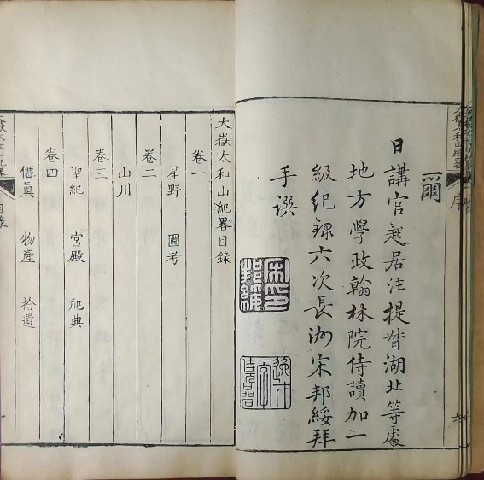 爾
日講官起居注提督湖北等處
地方學政翰林院侍讀加一
級紀錄六次長洲宋邦綏拜
手撰
大嶽太和山紀畧目錄
卷一
星野 圖考
卷二
山川
卷三
聖紀 宮殿 祀典
卷四
僊真 物產 拾遺
目錄